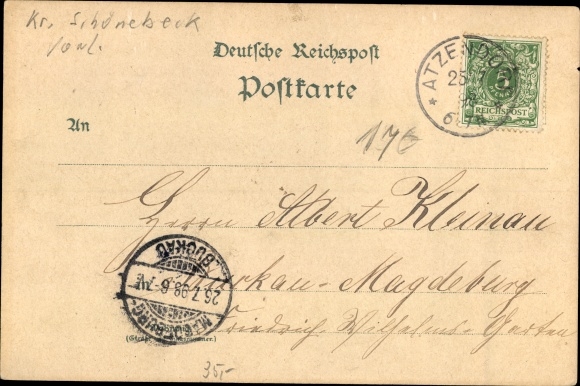 Kr. Schönebeck
Deutsche Reichspost
Postkarte
ATZENDORF
25
REICHSPOST
5
An
176
Herrn Albert Kleinau
Buckau-Magdeburg
Friedrich-Wilhelms-Garten
MAGDEBURG-BUCKAU
26.7.98.6-7V.
Wohnung
35,-